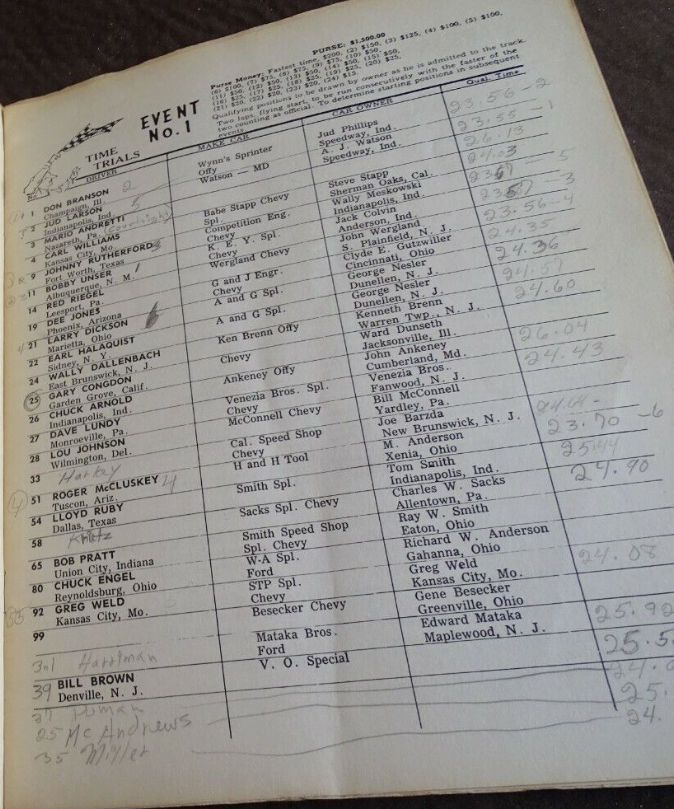 PURSE: $1,500.00
Purse Money: Fastest time, $200, (2) $150, (3) $125, (4) $100, (5) $100,
Qualifying positions to be drawn by owner as he is admitted to the track.
Two laps, flying start, to be run consecutively with the faster of the
two counting as official. To determine starting positions in subsequent
events.
EVENT
No. 1
TIME
TRIALS
DRIVER MAKE CAR CAR OWNER Qual. Time
1 DON BRANSON 2 Wynn's Sprinter Jud Phillips 23.56-2
Champaign, Ill. Offy Speedway, Ind.
2 JUD LARSON 5 Watson — MD A. J. Watson 23.55-1
Indianapolis, Ind. Speedway, Ind.
3 MARIO ANDRETTI 26.13
Nazareth, Pa.
4 CARL WILLIAMS Babe Stapp Chevy Steve Stapp 24.03
Kansas City, Mo. Spl. Sherman Oaks, Cal.
9 JOHNNY RUTHERFORD Competition Eng. Wally Meskowski
Fort Worth, Texas Chevy Indianapolis, Ind.
11 BOBBY UNSER K. E. Y. Spl. Jack Colvin
Albuquerque, N. M. Chevy Anderson, Ind.
14 RED RIEGEL Wergland Chevy John Wergland 23.56-4
Leesport, Pa. S. Plainfield, N. J.
19 DEE JONES G and J Engr. Clyde E. Gutzwiller
Phoenix, Arizona Chevy Cincinnati, Ohio
21 LARRY DICKSON A and G Spl. George Nesler 24.36
Marietta, Ohio Dunellen, N. J.
22 EARL HALAQUIST A and G Spl. George Nesler
Sidney, N. Y. Dunellen, N. J.
24 WALLY DALLENBACH Ken Brenn Offy Kenneth Brenn 24.60
East Brunswick, N. J. Warren Twp., N. J.
25 GARY CONGDON Chevy Ward Dunseth
Garden Grove, Calif. Jacksonville, Ill.
26 CHUCK ARNOLD Ankeney Offy John Ankeney 26.04
Indianapolis, Ind. Cumberland, Md.
27 DAVE LUNDY Venezia Bros. Spl. Venezia Bros. 24.43
Monroeville, Pa. Chevy Fanwood, N. J.
28 LOU JOHNSON McConnell Chevy Bill McConnell
Wilmington, Del. Yardley, Pa.
33 Cal. Speed Shop Joe Barzda
Chevy New Brunswick, N. J.
51 ROGER McCLUSKEY 4 H and H Tool M. Anderson 23.70 -6
Tuscon, Ariz. Xenia, Ohio
54 LLOYD RUBY Smith Spl. Tom Smith 25.44
Dallas, Texas Indianapolis, Ind.
58 Sacks Spl. Chevy Charles W. Sacks 24.90
Allentown, Pa.
65 BOB PRATT Smith Speed Shop Ray W. Smith
Union City, Indiana Spl. Chevy Eaton, Ohio
80 CHUCK ENGEL W-A Spl. Richard W. Anderson
Reynoldsburg, Ohio Ford Gahanna, Ohio
92 GREG WELD STP Spl. Greg Weld 24.08
Kansas City, Mo. Chevy Kansas City, Mo.
99 Besecker Chevy Gene Besecker
Greenville, Ohio
Mataka Bros. Edward Mataka 25.92
Ford Maplewood, N. J.
Harriman V. O. Special 25.5
39 BILL BROWN
Denville, N. J.
25 McAndrews 25.
35 Miller 24.